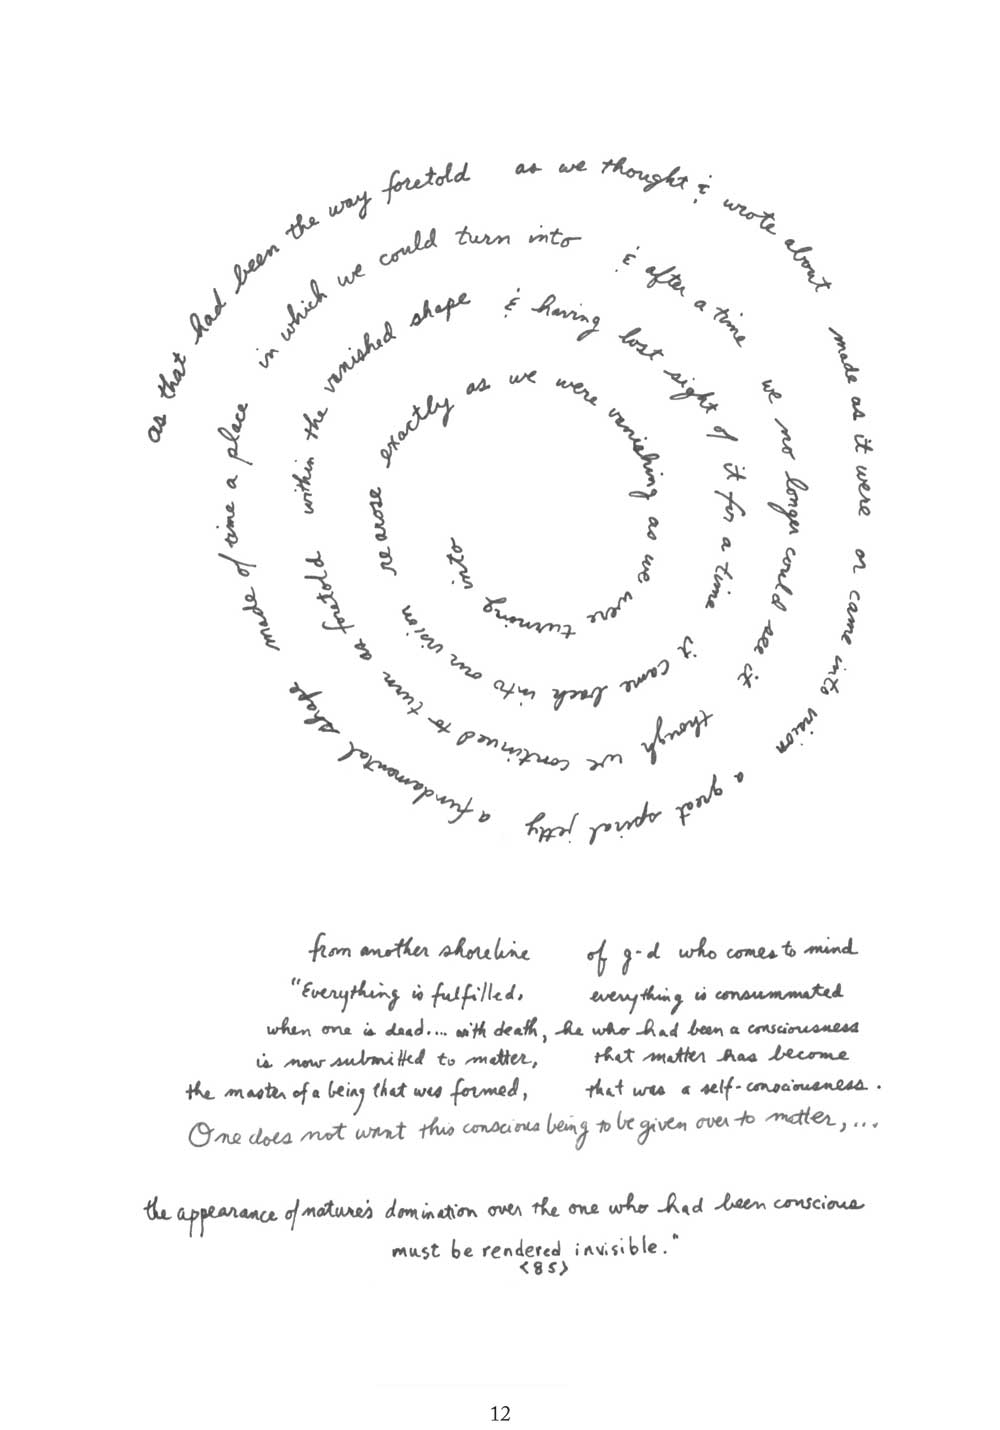 as that had been the way foretold as we thought & wrote about made as it were or came into vision a great spiral jetty a fundamental shape
made of time a place in which we could turn into & after a time we no longer could see it though we continued to turn as foretold
within the vanished shape & having lost sight of it for a time it came back into our vision
re arose exactly as we were vanishing as we were turning into
from another shoreline of g-d who comes to mind
"Everything is fulfilled, everything is consummated
when one is dead.... with death, he who had been a consciousness
is now submitted to matter, that matter has become
the master of a being that was formed, that was a self-consciousness.
One does not want this conscious being to be given over to matter,...
the appearance of nature's domination over the one who had been conscious
must be rendered invisible."
<85>
12